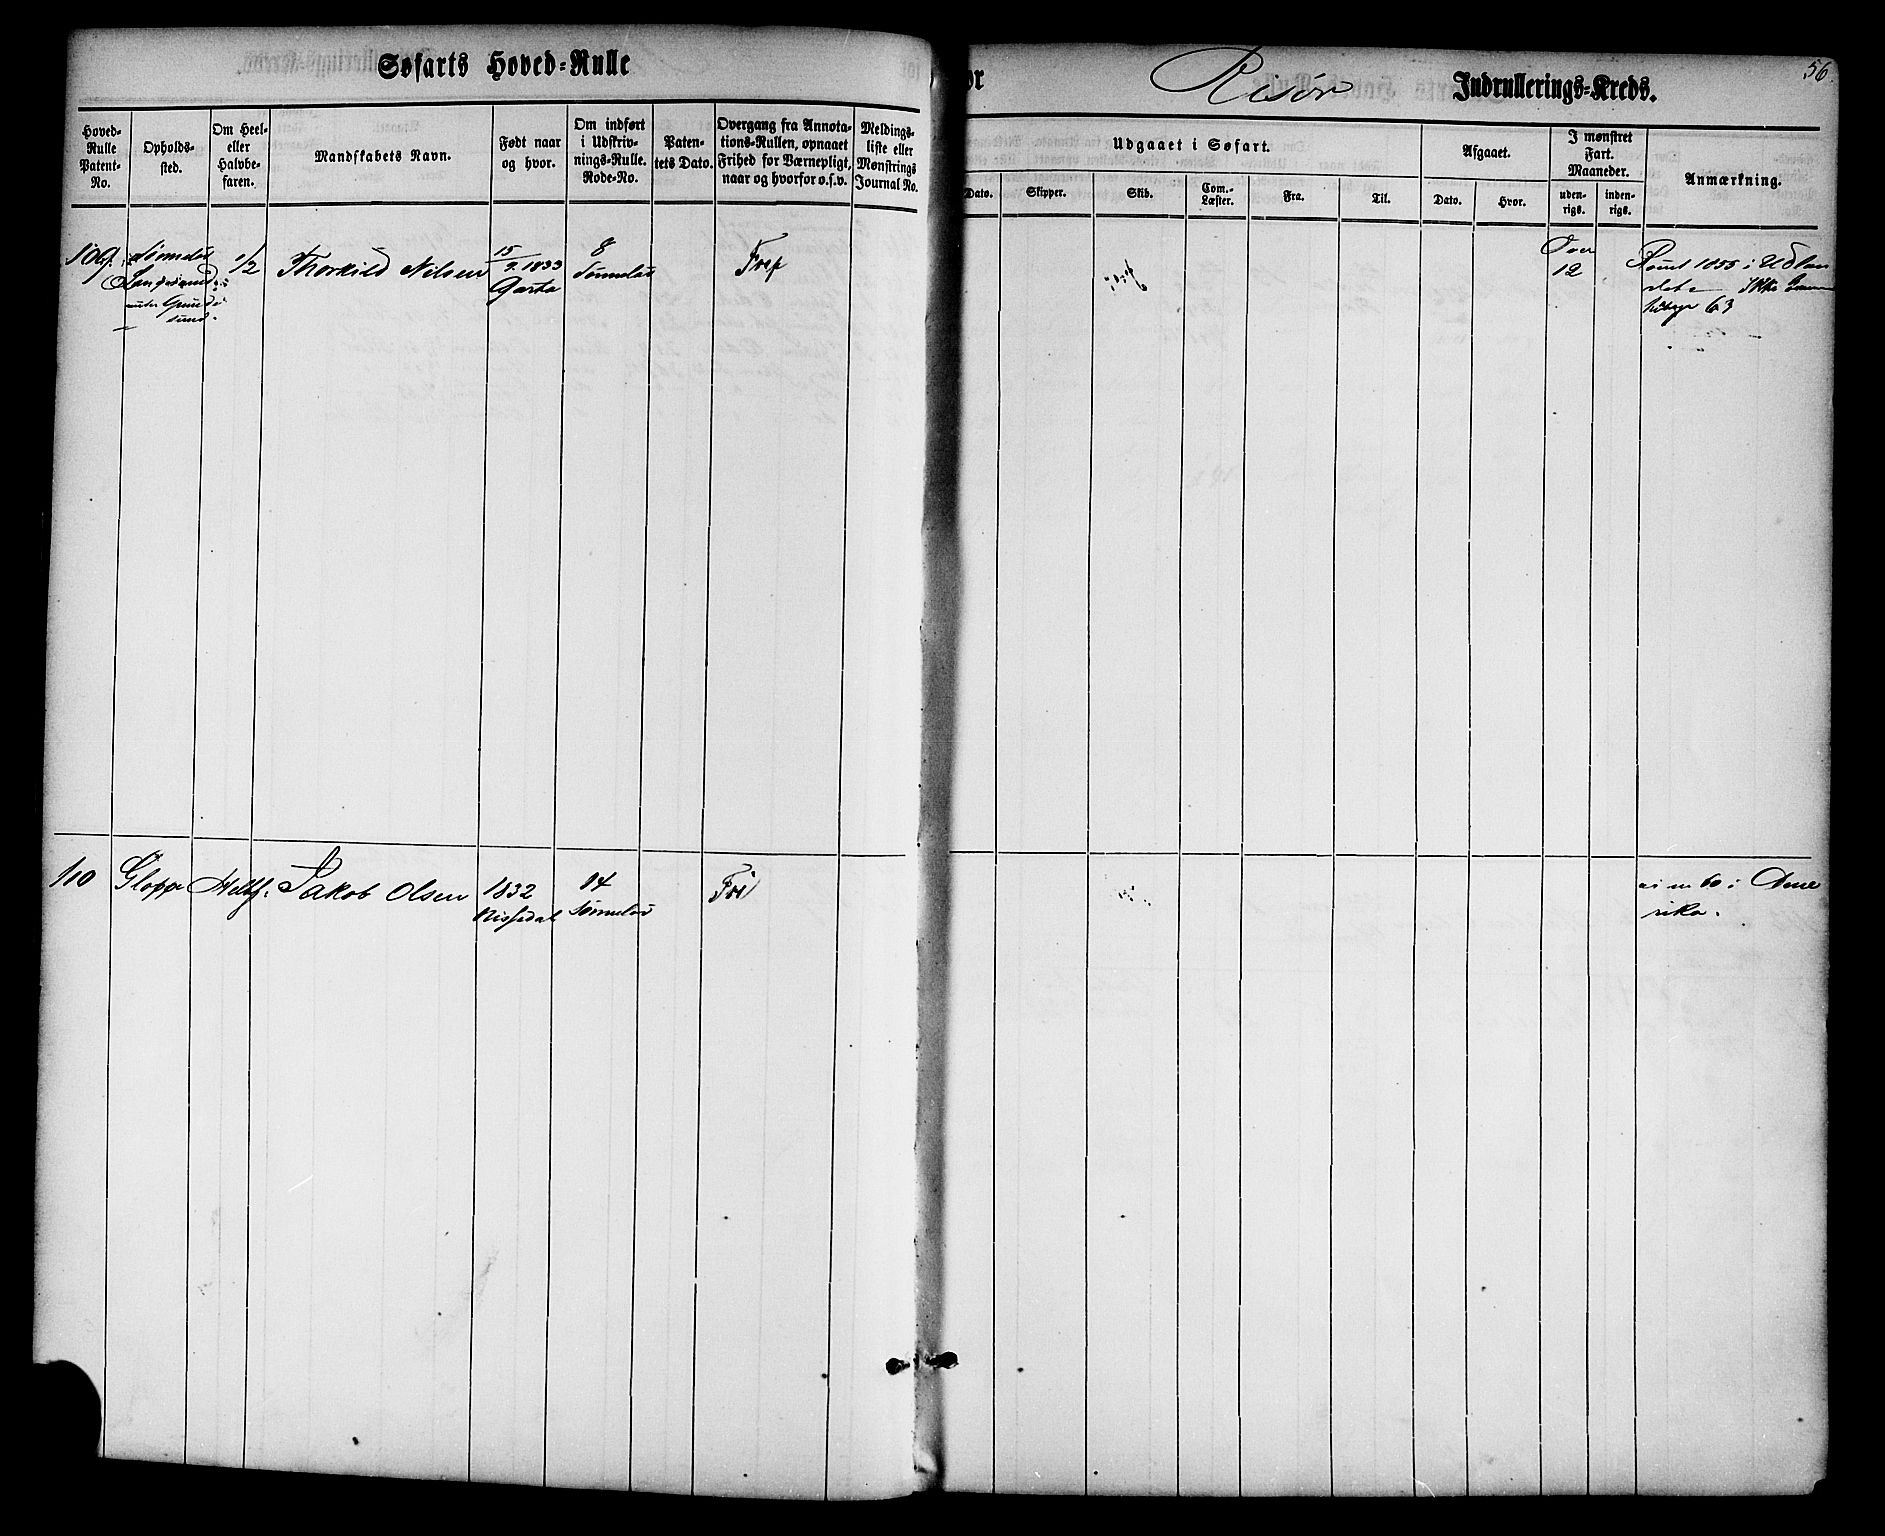 Søfarts Hoved-Rulle
Risør
Indrullerings-Kreds.
56
Hoved-
Rulle
Patent-
No.
Opholds-
sted.
Om Heel-
eller
Halvbe-
faren.
Mandskabets Navn.
Født naar
og hvor.
Om indført
i Udskriv-
nings-Rulle.
Rode-No.
Paten-
tets Dato.
Overgang fra Annota-
tions-Rullen, opnaaet
Frihed for Værnepligt,
naar og hvorfor o.s.v.
Meldings-
liste eller
Mønstrings
Journal No.
Udgaaet i Søfart.
Dato.
Skipper.
Skib.
Com.-
Læster.
Fra.
Til.
Afgaaet.
Dato.
Hvor.
I mønstret
Fart.
Maaneder.
uden-
rigs.
inden-
rigs.
Anmærkning.
109.
1/2
Thorkild Nilsen
15/9 1833
8
Over
12
Rømt 1855 i Udlan
det Ikke
63
110
Gloppe
Jakob Olsen
1832
Nissedal
14
60 i Ame
rika.